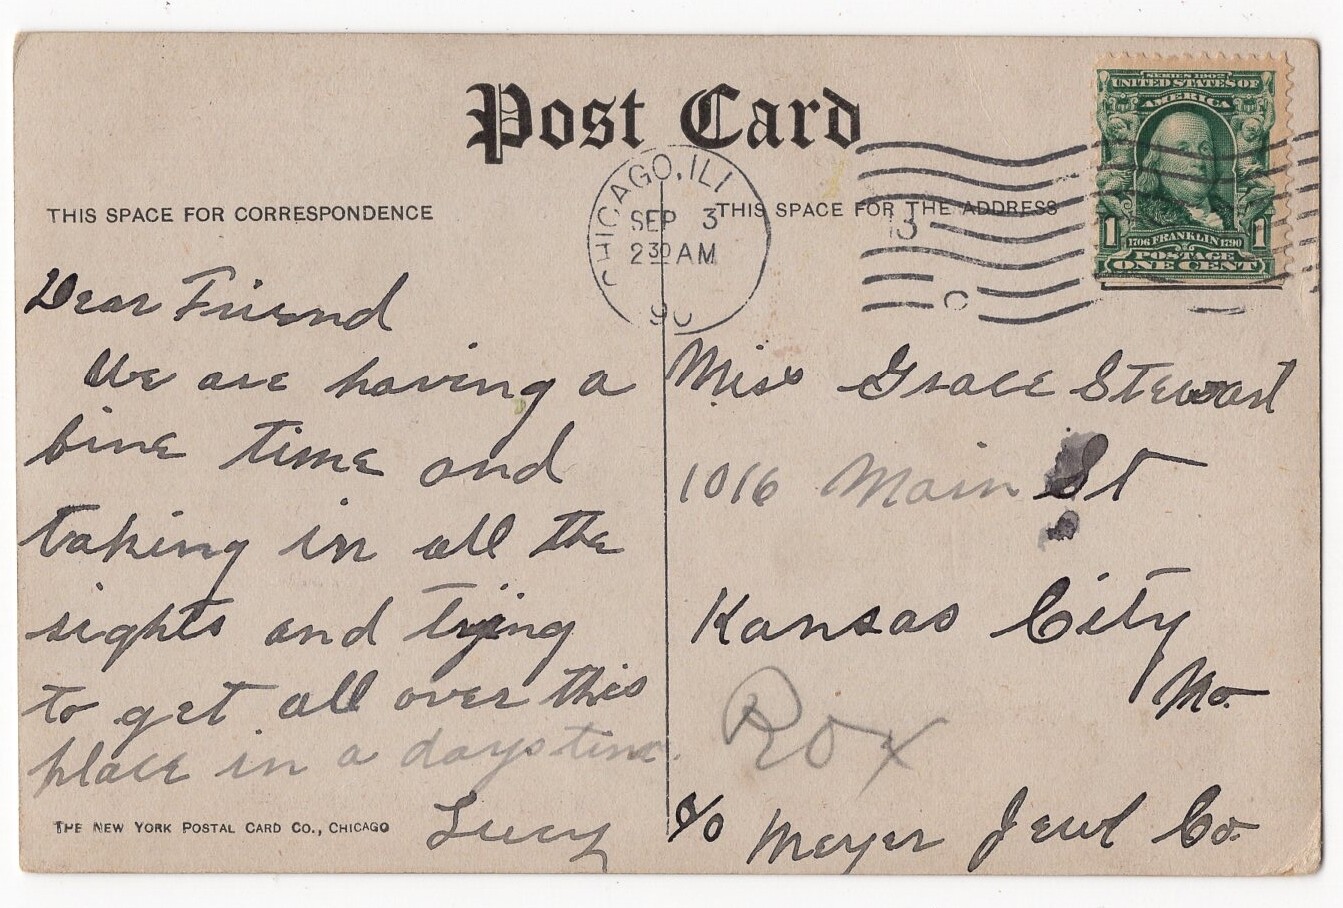 Post Card
THIS SPACE FOR CORRESPONDENCE
THIS SPACE FOR THE ADDRESS
CHICAGO, ILL
SEP 3
2 30 AM
190
13
C
SERIES 1902
UNITED STATES OF
AMERICA
1706 FRANKLIN 1790
1 1
POSTAGE
ONE CENT
Dear Friend
We are having a
fine time and
taking in all the
sights and trying
to get all over this
place in a days time.
Lucy
THE NEW YORK POSTAL CARD CO., CHICAGO
Miss Grace Stewart
1016 Main St
Kansas City
Mo.
Rox
c/o Meyer Jewl Co.